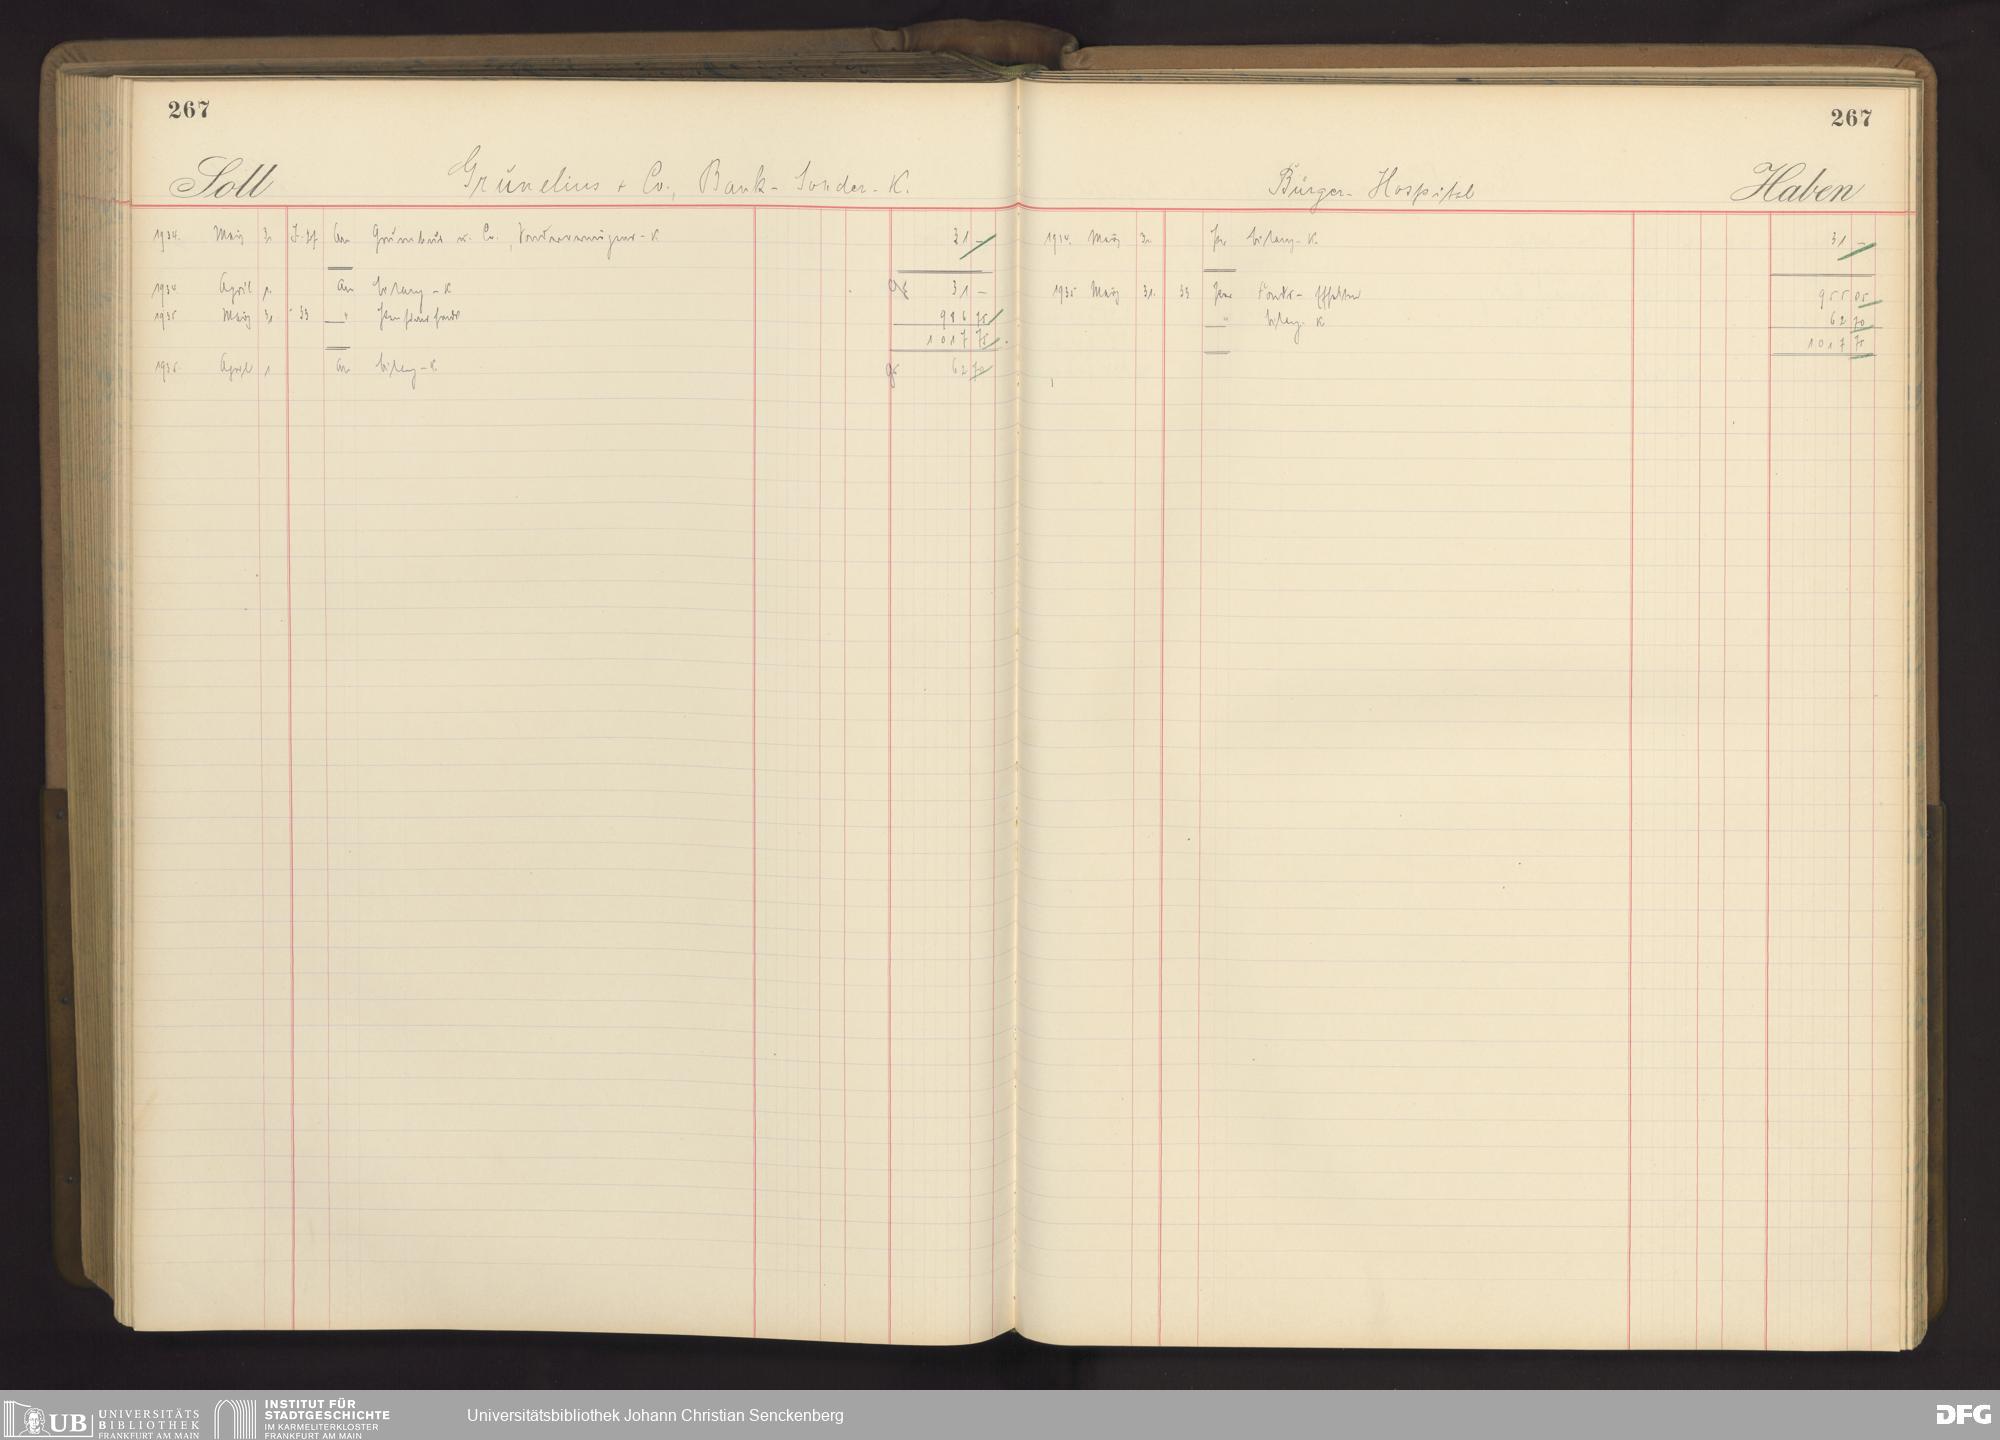 267
Soll
Grünelius & Co., Bank-Sonder-K.
1934. März 31 J.37 An Grünelius u. Co., Sondervermögens-K 31 –
1934 April 1. An Bilanz-K 31 –
1935 März 31 33 " 986 75
1017 75
1935 April 1 An Bilanz-K 62 70
267
Bürger-Hospital
Haben
1934. März 31. Per Bilanz-K. 31 –
1935 März 31. 33 Per Fonds-Effekten 955 05
" Bilanz K 62 70
1017 75
UB
UNIVERSITÄTS
BIBLIOTHEK
FRANKFURT AM MAIN
INSTITUT FÜR
STADTGESCHICHTE
IM KARMELITERKLOSTER
FRANKFURT AM MAIN
Universitätsbibliothek Johann Christian Senckenberg
DFG